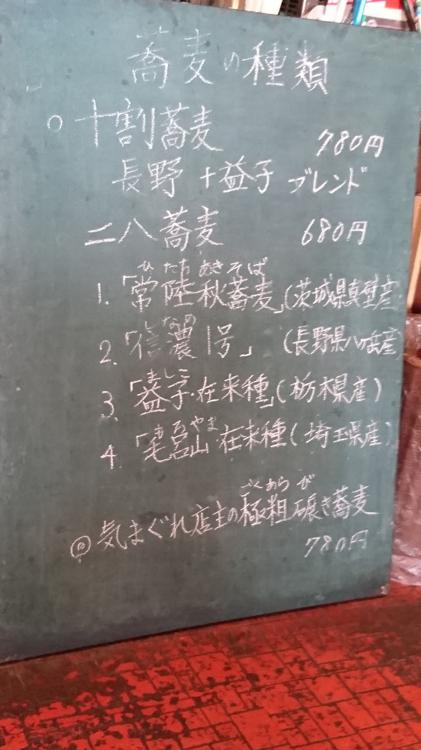 蕎麦の種類
○十割蕎麦 780円
長野+益子 ブレンド
二八蕎麦 680円
ひたちあきそば
1.「常陸秋蕎麦」(茨城県真壁産
しなの
2.「信濃1号」 (長野県八ヶ岳産)
ましこ
3.「益子・在来種」(栃木県産)
もろやま
4.「毛呂山・在来種(埼玉県産)
ごくあらび
◎気まぐれ店主の極粗碾き蕎麦
780円